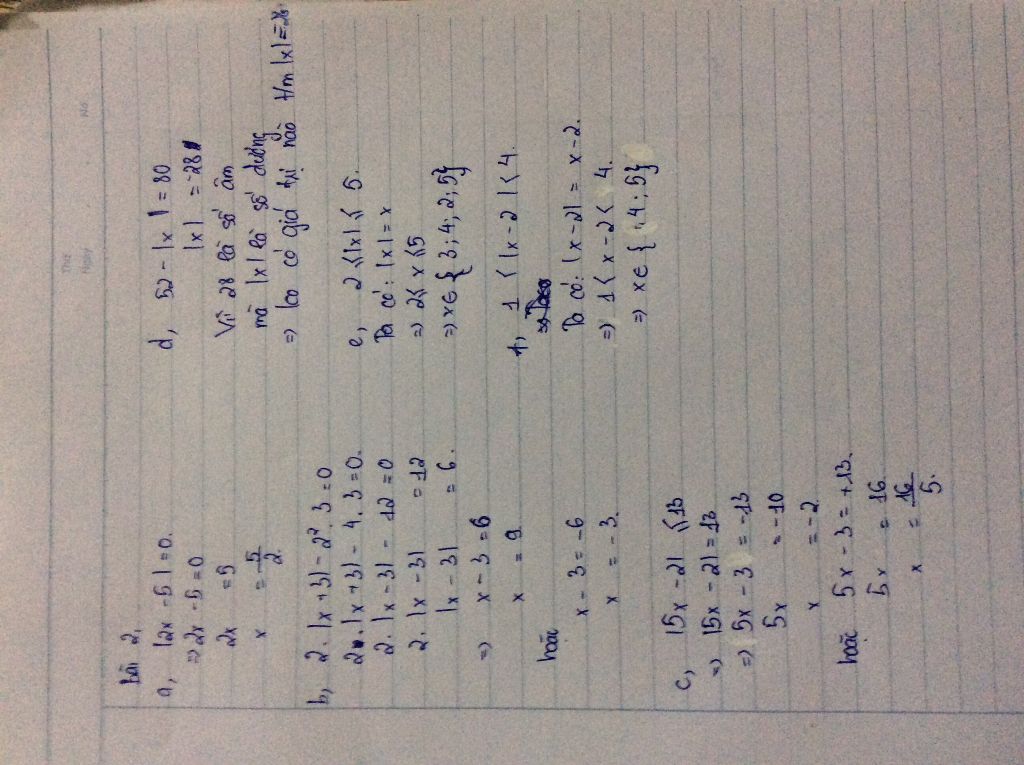 Thứ
Ngày
No
Bài 2,
a, |2x - 5| = 0.
=> 2x - 5 = 0
2x = 5
x = 5/2.
b, 2. |x + 3| - 2². 3 = 0
2. |x + 3| - 4. 3 = 0.
2. |x - 3| - 12 = 0
2. |x - 3| = 12
|x - 3| = 6.
=> x - 3 = 6
x = 9.
hoặc x - 3 = -6
x = -3.
c, |5x - 2| ≤ 13
=> |5x - 2| = 13
=> 5x - 3 = -13
5x = -10
x = -2.
hoặc 5x - 3 = +13.
5x = 16.
x = 16/5.
d, 52 - |x| = 80
|x| = -28
Vì 28 là số âm
mà |x| là số dương
=> ko có giá trị nào t/m |x| = -28.
e, 2 ≤ |x| ≤ 5.
Ta có: |x| = x
=> 2 ≤ x ≤ 5
=> x ∈ { 3; 4; 2; 5}
f, 1 < |x - 2| < 4.
Ta có: |x - 2| = x - 2.
=> 1 < x - 2 < 4.
=> x ∈ { 4; 5}